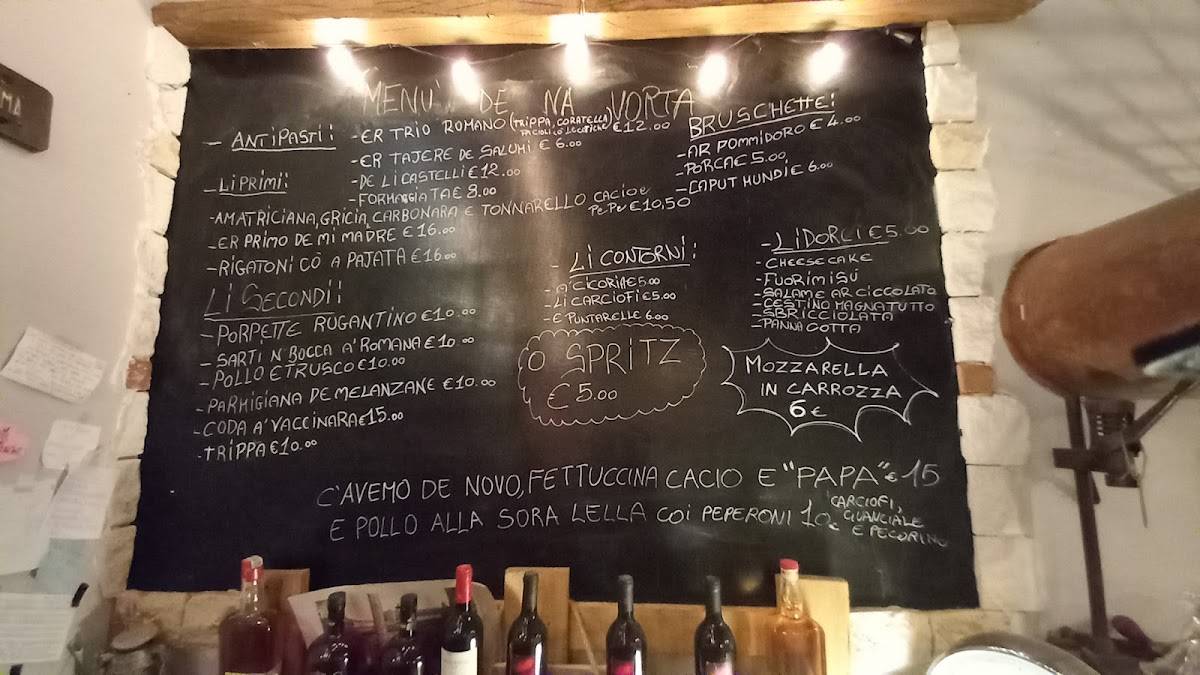 MENU' DE NA VORTA
- ANTIPASTI:
- ER TRIO ROMANO (TRIPPA, CORATELLA
€12.00
- ER TAJERE DE SALUMI € 6.00
- DE LI CASTELLI €12.00
- FORMAGGIATA € 8.00
BRUSCHETTE:
- AR POMMIDORO € 4.00
- PORCA € 5.00
- CAPUT MUNDI € 6.00
- LI PRIMI:
- AMATRICIANA, GRICIA, CARBONARA E TONNARELLO CACIO E
PEPE €10,50
- ER PRIMO DE MI MADRE €16.00
- RIGATONI CÒ A PAJATA €16.00
LI SECONDI:
- PORPETTE RUGANTINO €10.00
- SARTI N BOCCA A' ROMANA €10.00
- POLLO ETRUSCO €10.00
- PARMIGIANA DE MELANZANE €10.00
- CODA A' VACCINARA €15.00
- TRIPPA €10.00
- LI CONTORNI:
- A' CICORIA €5.00
- LI CARCIOFI €5.00
- E PUNTARELLE 6.00
- LI DORCI €5.00
- CHEESECAKE
- FUORIMISÚ
- SALAME AR CICCOLATO
- CESTINO MAGNATUTTO
- SBRICCIOLATA
- PANNA COTTA
O SPRITZ
€5.00
MOZZARELLA
IN CARROZZA
6€
C'AVEMO DE NOVO, FETTUCCINA CACIO E "PAPA" €15
CARCIOFI,
GUANCIALE
E PECORINO
E POLLO ALLA SORA LELLA COI PEPERONI 10€